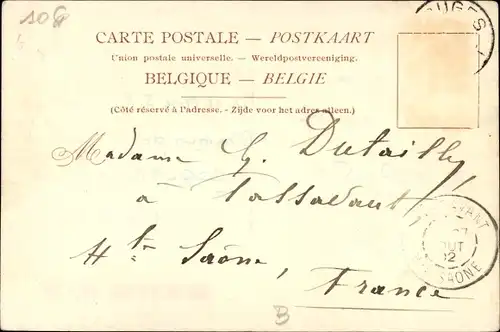 106
UGES
CARTE POSTALE — POSTKAART
Union postale universelle. — Wereldpostvereeniging.
BELGIQUE — BELGIE
(Côté réservé à l'adresse. - Zijde voor het adres alleen.)
Madame G. Dutailly,
à Passavant,
Hte Saône,
France
SAÔNE
B